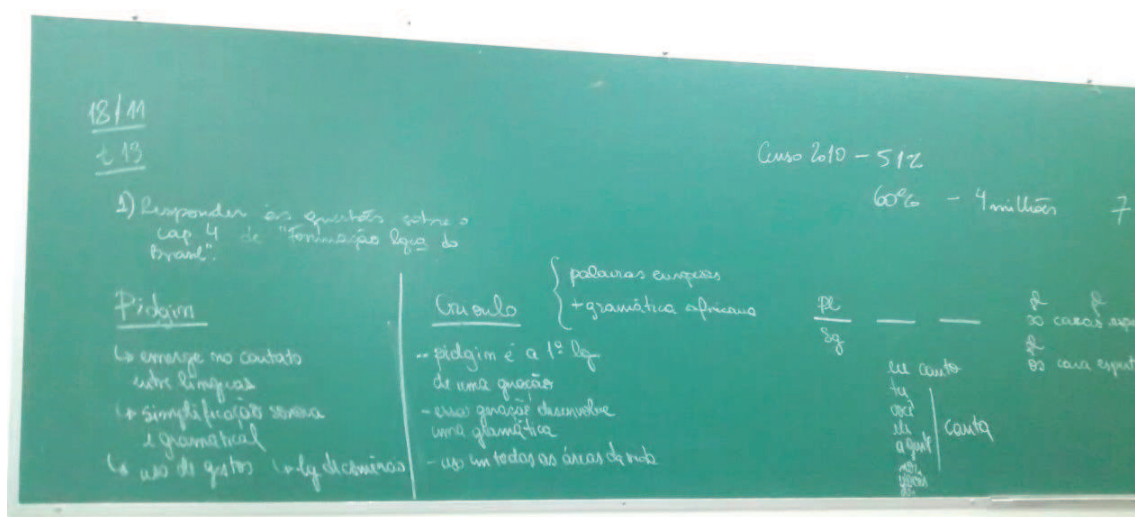 18/11
t 13
1) Responder às questões sobre o
cap 4 de "Formação lgca do
Brasil".
Pidgim
↳ emerge no contato
entre línguas
↳ simplificação sonora
e gramatical
↳ uso de gestos ↳ lg de comércio
Crioulo
{ palavras europeias
+ gramática africana
- pidgim é a 1ª lg
de uma geração
- essa geração desenvolve
uma glamática
- uso em todas as áreas da vida
Censo 2010 - 512
60% - 4 milhões 7
pl
sg
eu canto
tu
você
ele
a gente
canta
os caras
os cara